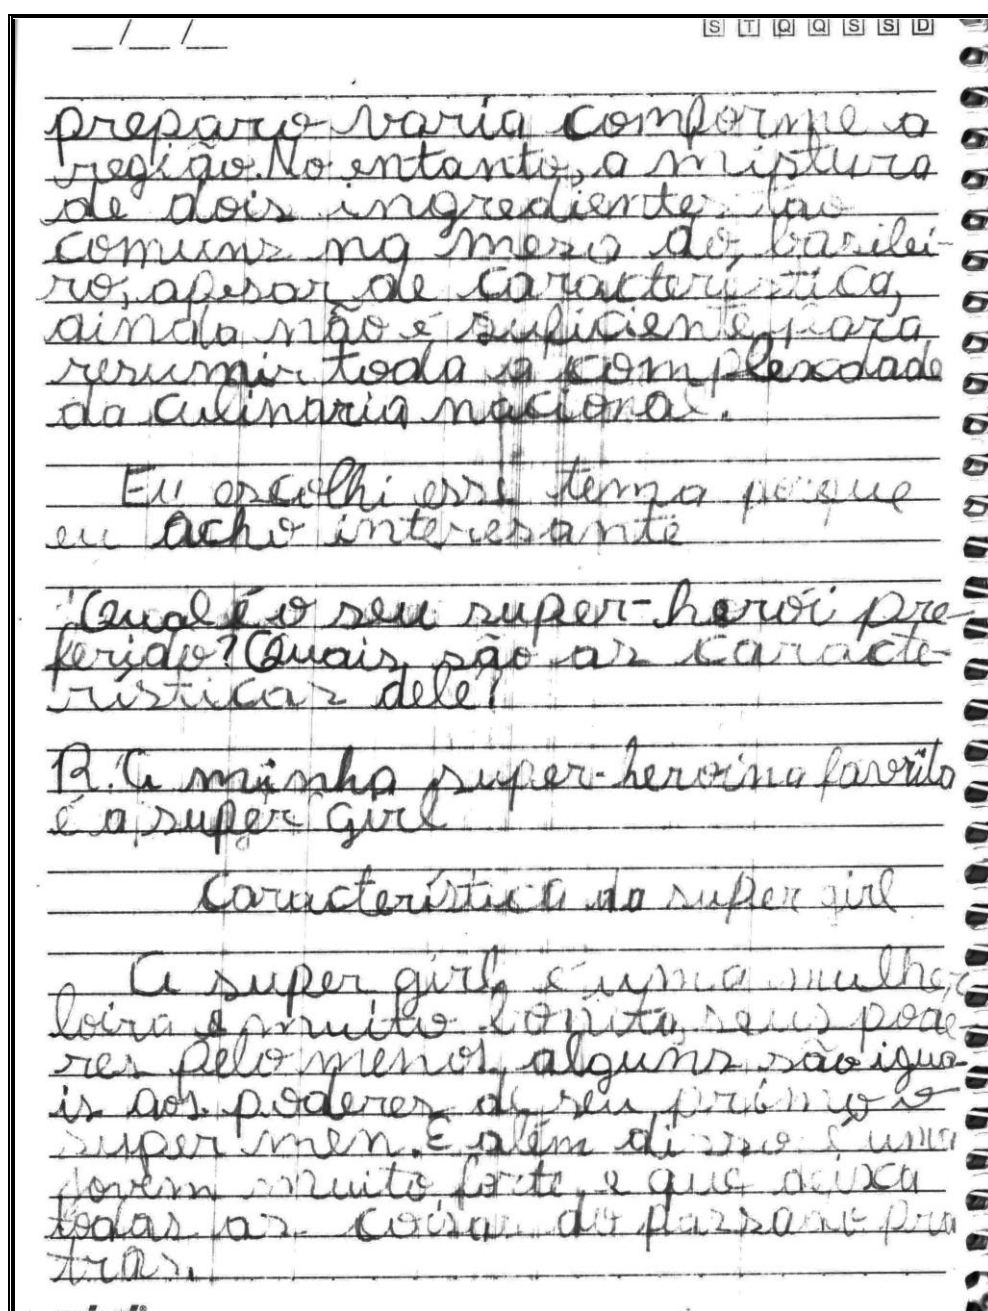 __/__/__ S T Q Q S S D
preparo varia conforme a
região. No entanto, a mistura
de dois ingredientes tão
comuns na mesa do brasilei-
ro, apesar de característica,
ainda não é suficiente para
resumir toda a complexdade
da culinaria nacional.
Eu escolhi esse tema porque
eu acho interesante
Qual é o seu super-herói pre-
ferido? Quais são as caracte-
rísticas dele?
R: A minha super-heroína favorita
é a super girl
Característica da super girl
A super girl é uma mulher
loira e muito bonita, seus pode
res pelo menos alguns são igua-
is aos poderes de seu primo o
super men. E além disso é uma
jovem muito forte, e que deixa
todas as coisas do passado pra
tras.